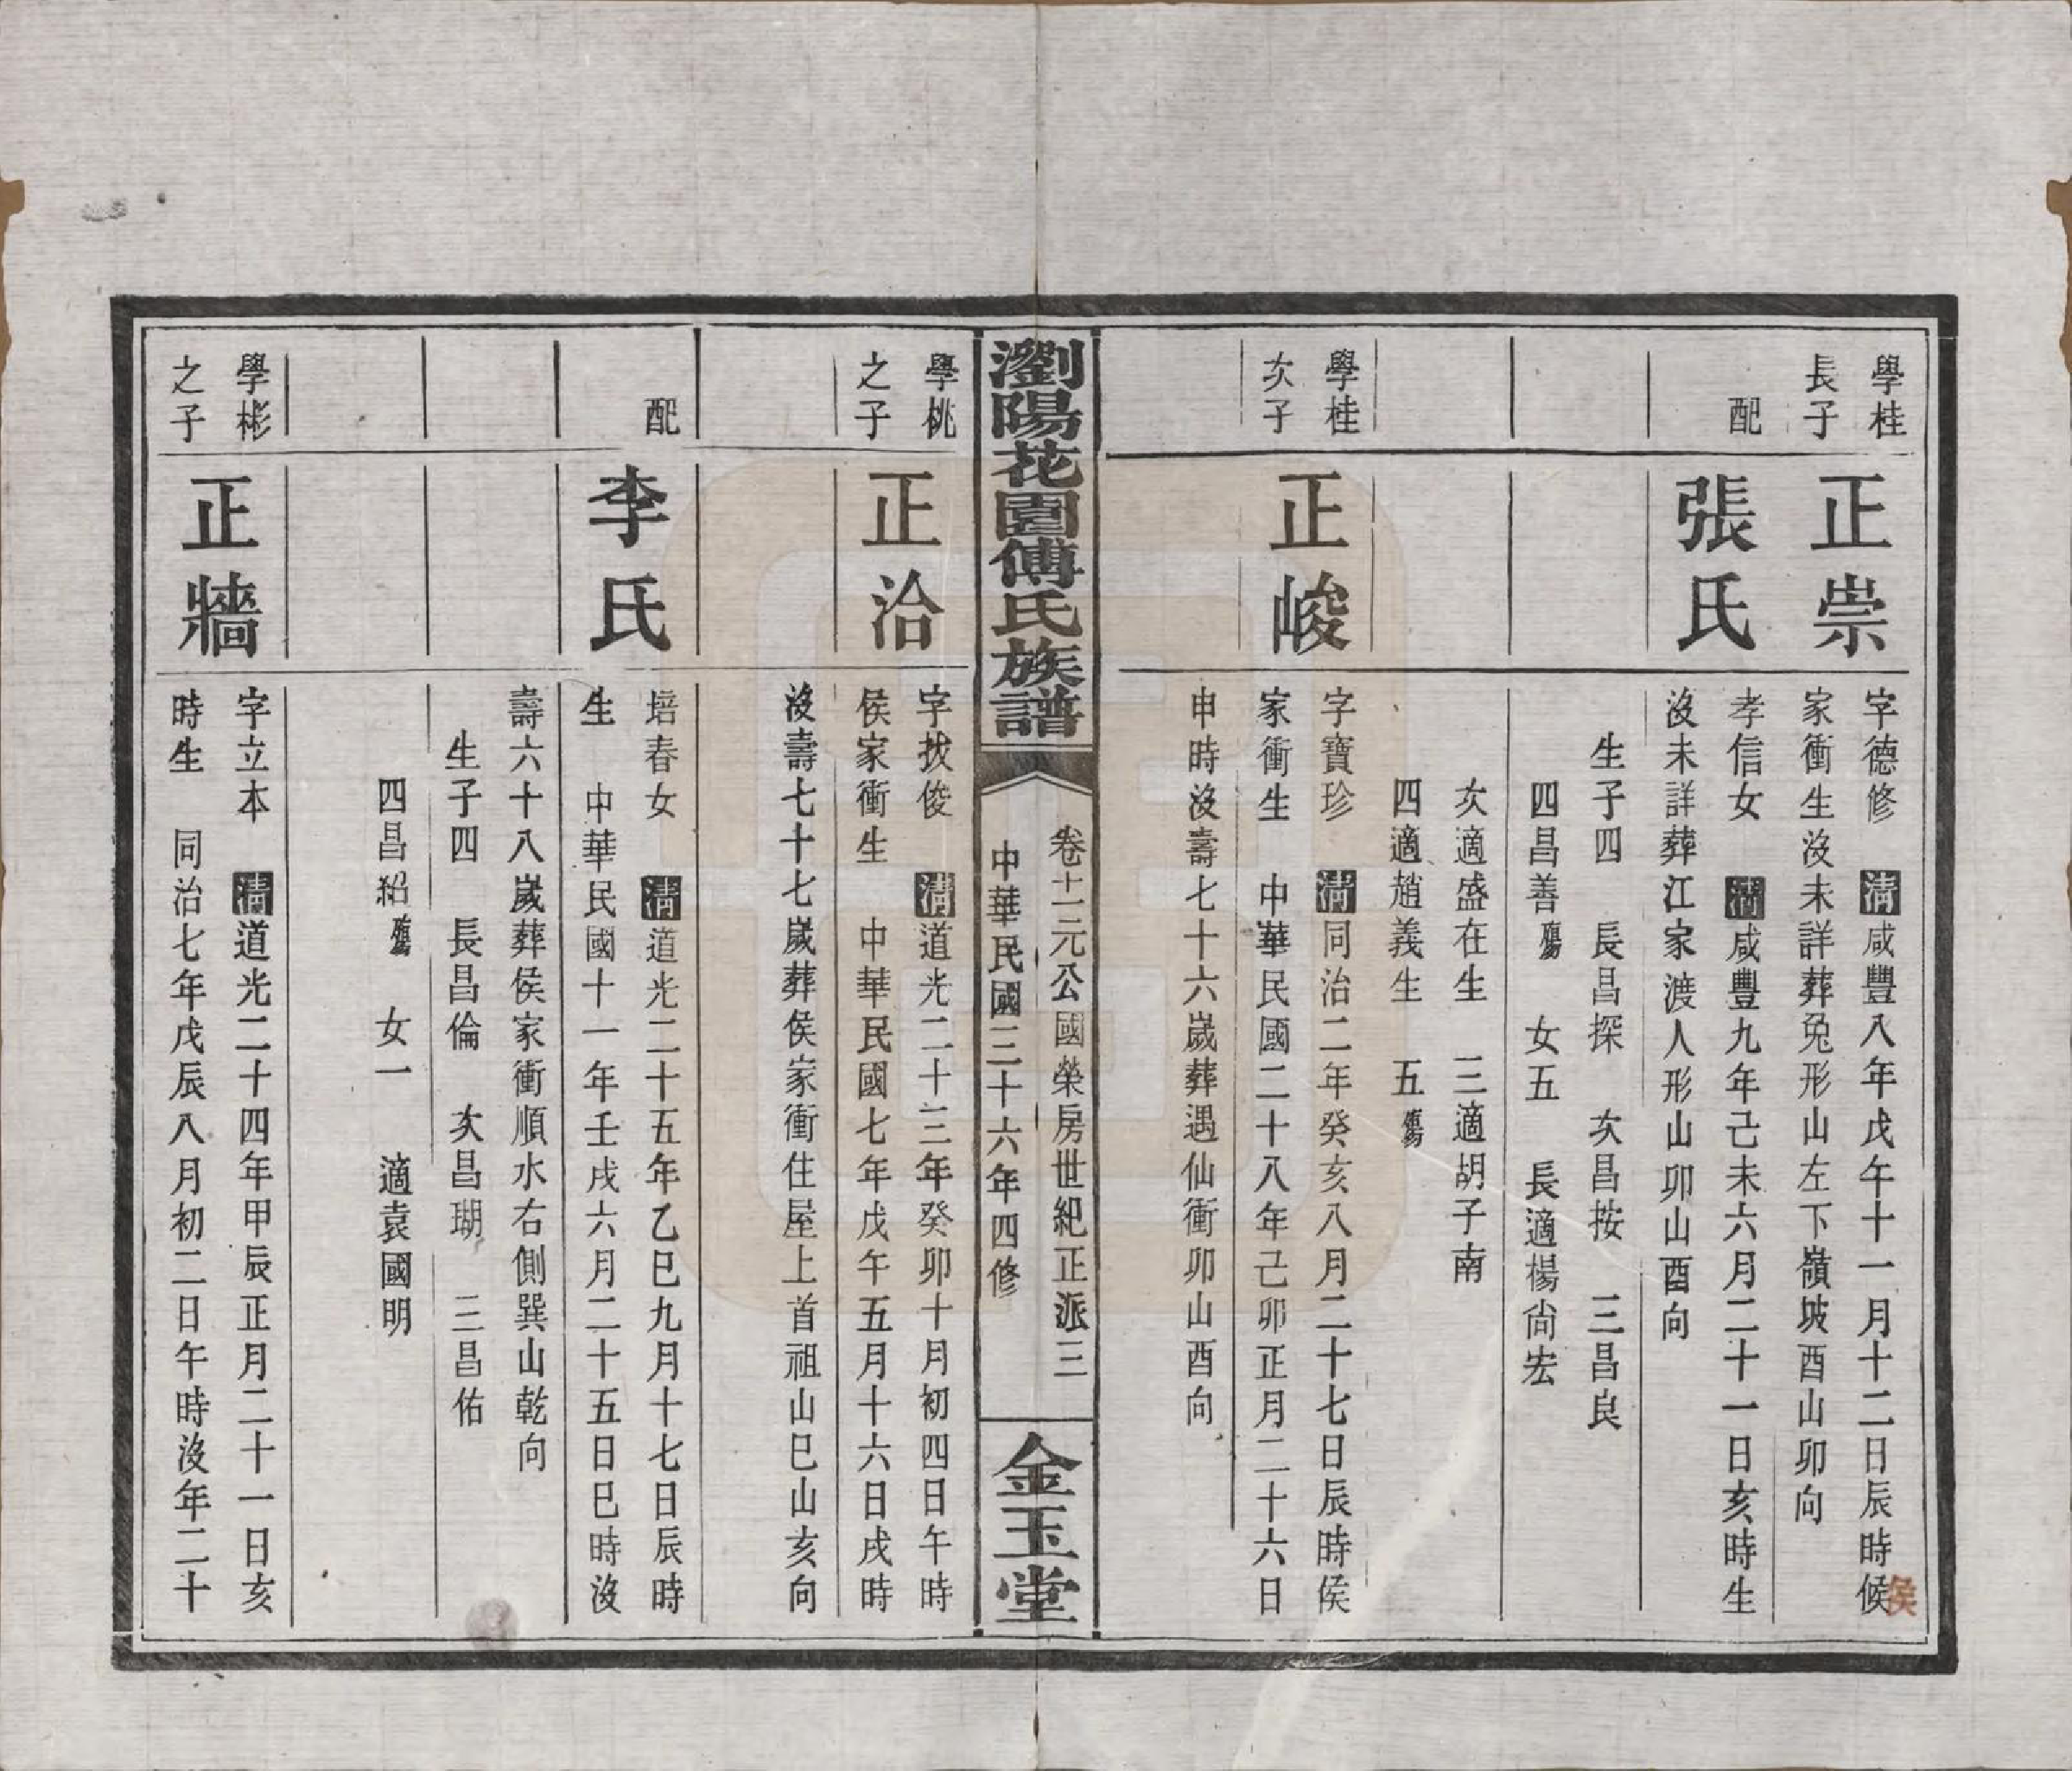 學桂
長子
正崇
字德修 清咸豐八年戊午十一月十二日辰時候
侯
家衝生沒未詳葬兔形山左下嶺坡酉山卯向
配
張氏
孝信女 清咸豐九年己未六月二十一日亥時生
沒未詳葬江家渡人形山卯山酉向
生子四 長昌探 次昌按 三昌良
四昌善殤 女五 長適楊尙宏
次適盛在生 三適胡子南
四適趙義生 五殤
學桂
次子
正峻
字寶珍 清同治二年癸亥八月二十七日辰時侯
家衝生 中華民國二十八年己卯正月二十六日
申時沒壽七十六嵗葬遇仙衝卯山酉向
瀏陽花園傅氏族譜
卷十一元公國榮房世紀正派三
中華民國三十六年四修
金玉堂
學桃
之子
正洽
字扙俊 清道光二十三年癸卯十月初四日午時
侯家衝生 中華民國七年戊午五月十六日戌時
沒壽七十七嵗葬侯家衝住屋上首祖山巳山亥向
配
李氏
培春女 清道光二十五年乙巳九月十七日辰時
生 中華民國十一年壬戌六月二十五日巳時沒
壽六十八嵗葬侯家衝順水右側巽山乾向
生子四 長昌倫 次昌瑚 三昌佑
四昌紹殤 女一 適袁國明
學彬
之子
正牆
字立本 清道光二十四年甲辰正月二十一日亥
時生 同治七年戊辰八月初二日午時沒年二十